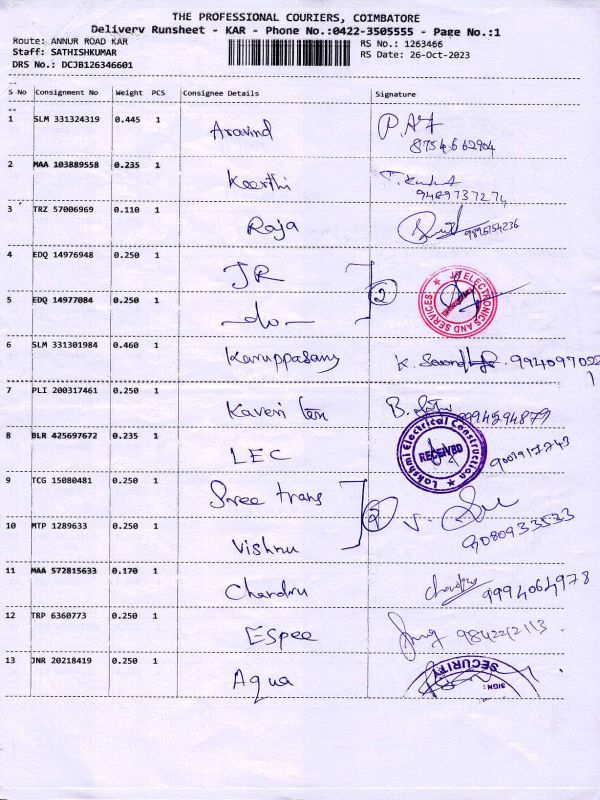 THE PROFESSIONAL COURIERS, COIMBATORE
Delivery Runsheet - KAR - Phone No.:0422-3505555 - Page No.:1
Route: ANNUR ROAD KAR
RS No.: 1263466
Staff: SATHISHKUMAR
RS Date: 26-Oct-2023
DRS No.: DCJB126346601
S No Consignment No Weight PCS Consignee Details Signature
1 SLM 331324319 0.445 1 Aravind
8754662904
2 MAA 103889558 0.235 1 Keerthi
9489737274
3 TRZ 57006969 0.110 1 Raja 9895154236
4 EDQ 14976948 0.250 1 JR 2
ELECTRONICS AND SERVICES
5 EDQ 14977084 0.250 1 -do-
6 SLM 331301984 0.460 1 Karuppasamy K. 9940970221
7 PLI 200317461 0.250 1 Kaveri B. 9994294879
8 BLR 425697672 0.235 1 LEC
Lakshmi Electrical Construction RECEIVED
9 TCG 15080481 0.250 1 Sree trans 2 V.
9080933533
10 MTP 1289633 0.250 1 Vishnu
11 MAA 572815633 0.170 1 Chandru 9994064978
12 TRP 6360773 0.250 1 ESpee 9842212113
13 JNR 20218419 0.250 1 Aqua
SECURITY
SIGN: